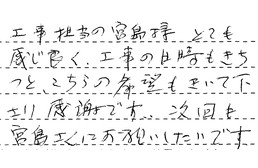 工事担当の宮島様 とても
感じ良く、工事の日時もきち
っと、こちらの希望もきいて下
さり感謝です、次回も
宮島さんにお願いしたいです